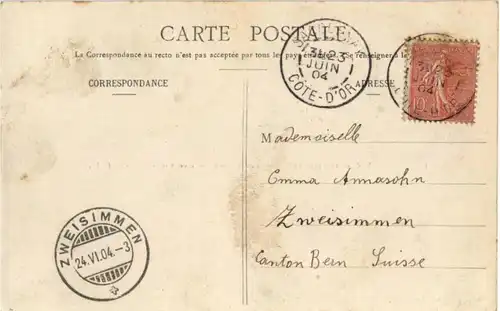 CARTE POSTALE
La Correspondance au recto n'est pas acceptée par tous les pays
CORRESPONDANCE
ADRESSE
13H 23
JUIN
04
COTE-D'OR
10
Mademoiselle
Emma Annasohn
Zweisimmen
Canton Bern Suisse
ZWEISIMMEN
24.VI.04.-3